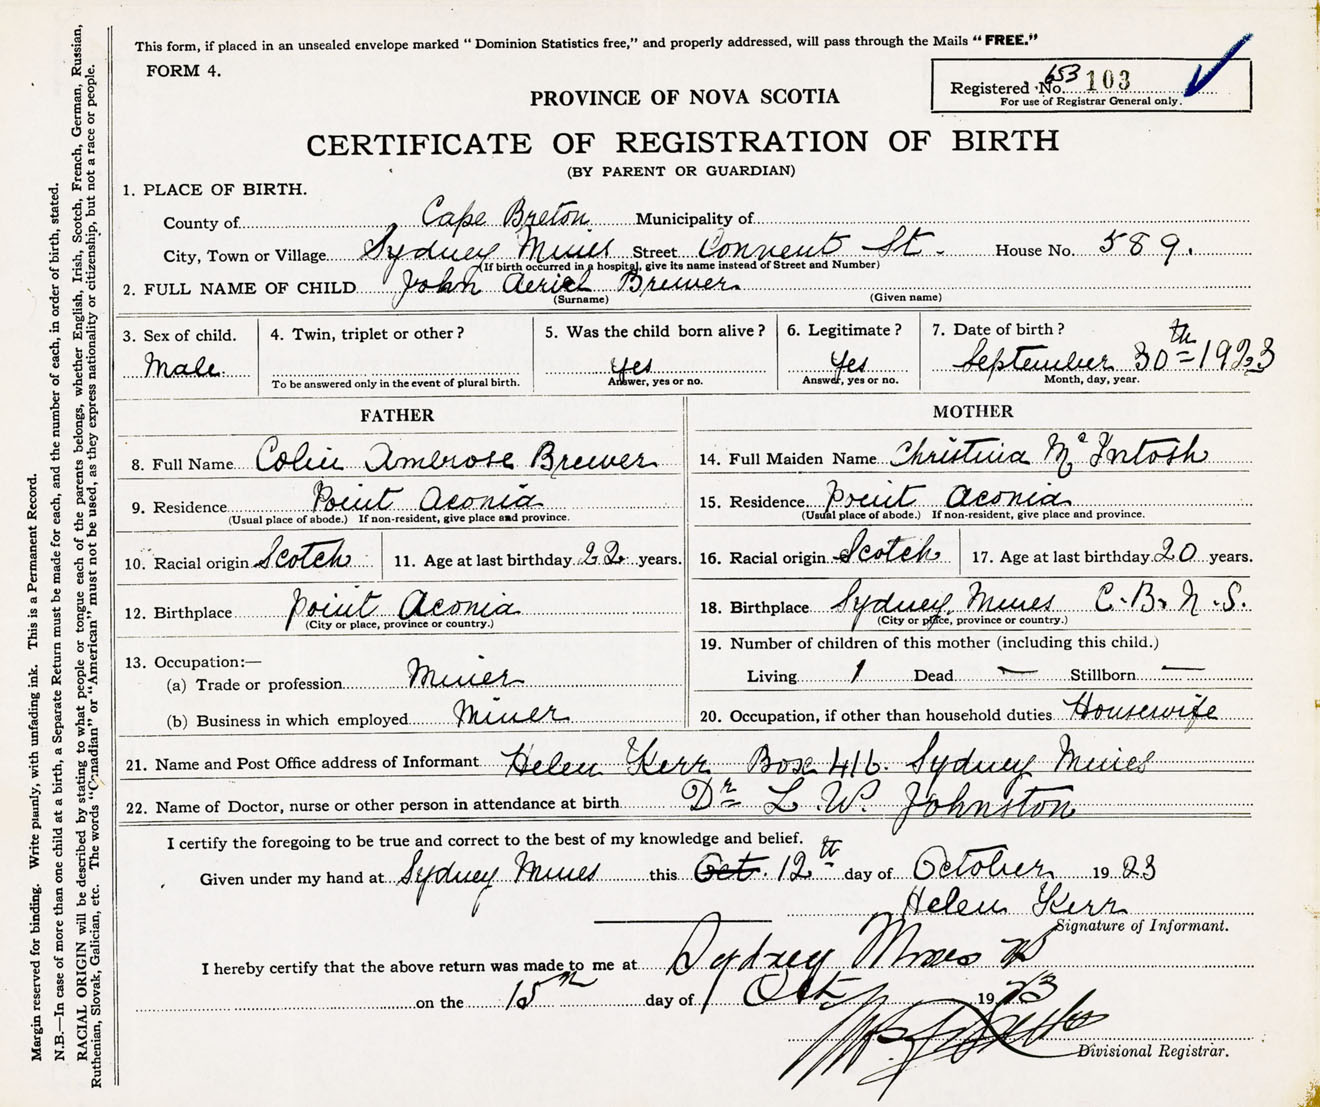 This form, if placed in an unsealed envelope marked “ Dominion Statistics free,” and properly addressed, will pass through the Mails “ FREE.”
FORM 4.
653
Registered No. 103
For use of Registrar General only.
PROVINCE OF NOVA SCOTIA
CERTIFICATE OF REGISTRATION OF BIRTH
(BY PARENT OR GUARDIAN)
1. PLACE OF BIRTH.
County of Cape Breton Municipality of
City, Town or Village Sydney Mines Street Convent St. House No. 589.
(If birth occurred in a hospital, give its name instead of Street and Number)
2. FULL NAME OF CHILD John Aeriel Brewer
(Surname) (Given name)
3. Sex of child. 4. Twin, triplet or other ? 5. Was the child born alive ? 6. Legitimate ? 7. Date of birth ?
Male Yes Yes September 30th 1923
To be answered only in the event of plural birth. Answer, yes or no. Answer, yes or no. Month, day, year.
FATHER
8. Full Name Colin Ambrose Brewer
9. Residence Point Aconia
(Usual place of abode.) If non-resident, give place and province.
10. Racial origin Scotch 11. Age at last birthday 22 years.
12. Birthplace Point Aconia
(City or place, province or country.)
13. Occupation:—
(a) Trade or profession Miner
(b) Business in which employed Miner
MOTHER
14. Full Maiden Name Christina McIntosh
15. Residence Point Aconia
(Usual place of abode.) If non-resident, give place and province.
16. Racial origin Scotch 17. Age at last birthday 20 years.
18. Birthplace Sydney Mines C.B. N.S.
(City or place, province or country.)
19. Number of children of this mother (including this child.)
Living 1 Dead — Stillborn —
20. Occupation, if other than household duties Housewife
21. Name and Post Office address of Informant Helen Kerr Box 416. Sydney Mines
22. Name of Doctor, nurse or other person in attendance at birth Dr L. W. Johnston
I certify the foregoing to be true and correct to the best of my knowledge and belief.
Given under my hand at Sydney Mines this Oct. 12th day of October 1923
Helen Kerr
Signature of Informant.
I hereby certify that the above return was made to me at Sydney Mines
on the 15th day of Oct 1923
Divisional Registrar.
Margin reserved for binding. Write plainly, with unfading ink. This is a Permanent Record.
N.B.—In case of more than one child at a birth, a Separate Return must be made for each, and the number of each, in order of birth, stated.
RACIAL ORIGIN will be described by stating to what people or tongue each of the parents belongs, whether English, Irish, Scotch, French, German, Russian,
Ruthenian, Slovak, Galician, etc. The words “Canadian” or “American” must not be used, as they express nationality or citizenship, but not a race or people.